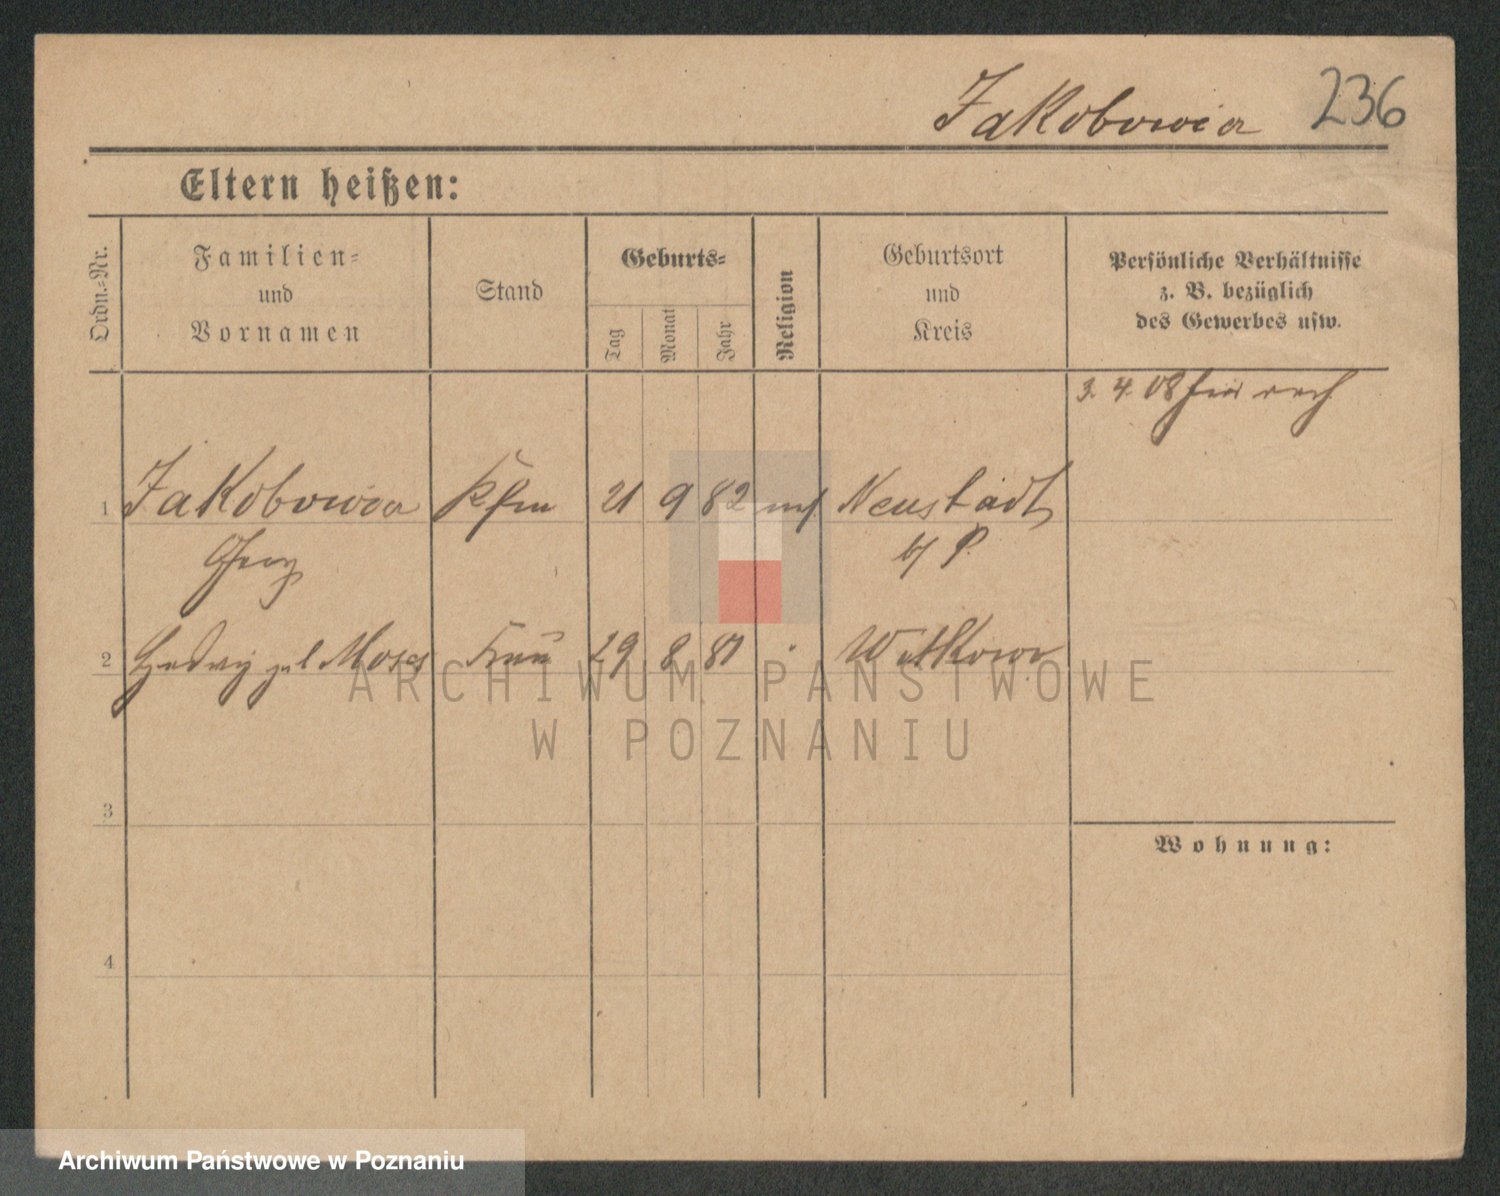 Jakobowicz 236
Eltern heißen:
Ordn.-Nr.
Familien-
und
Vornamen
Stand
Geburts-
Tag
Monat
Jahr
Religion
Geburtsort
und
Kreis
Persönliche Verhältnisse
z. B. bezüglich
des Gewerbes usw.
3. 4. 08
1 Jakobowicz Kfm 21 9 82 mos Neustadt
Georg b/ P.
2 Hedwig geb Moses Frau 29 8 81 " Witkowo
3
4
Wohnung:
ARCHIWUM PAŃSTWOWE
W POZNANIU
Archiwum Państwowe w Poznaniu